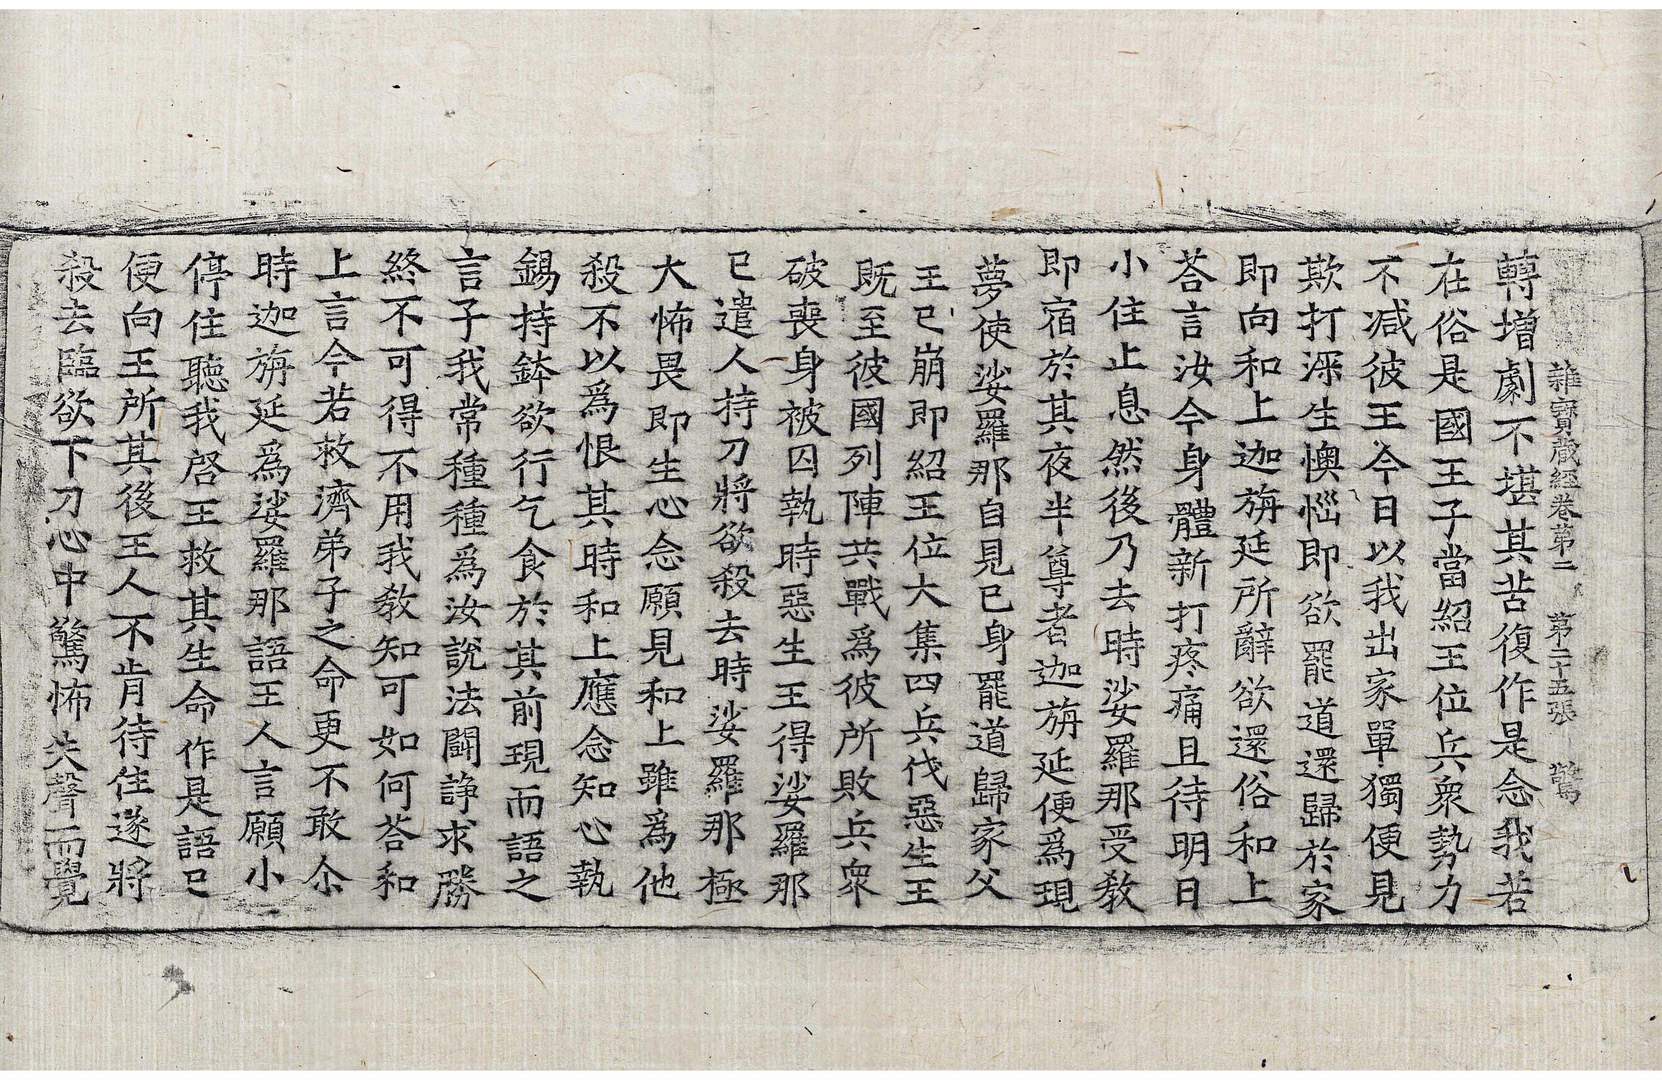 雜寶藏經卷第二 第二十五張 驚
轉增劇不堪其苦復作是念我若
在俗是國王子當紹王位兵衆勢力
不减彼王今日以我出家單獨便見
欺打深生懊惱即欲罷道還歸於家
即向和上迦旃延所辭欲還俗和上
荅言汝今身體新打疼痛且待明日
小住止息然後乃去時娑羅那受敎
即宿於其夜半尊者迦旃延便爲現
夢使娑羅那自見已身罷道歸家父
王已崩即紹王位大集四兵伐惡生王
既至彼國列陣共戰爲彼所敗兵衆
破喪身被囚執時惡生王得娑羅那
已遣人持刀將欲殺去時娑羅那極
大怖畏即生心念願見和上雖爲他
殺不以爲恨其時和上應念知心執
錫持鉢欲行乞食於其前現而語之
言子我常種種爲汝說法鬪諍求勝
終不可得不用我敎知可如何荅和
上言今若救濟弟子之命更不敢尒
時迦旃延爲娑羅那語王人言願小
停住聽我啓王救其生命作是語已
便向王所其後王人不肯待住遂將
殺去臨欲下刀心中驚怖失聲而覺